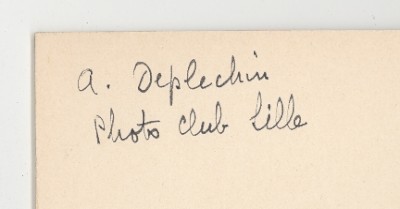 A. Deplechin
Photo Club Lille